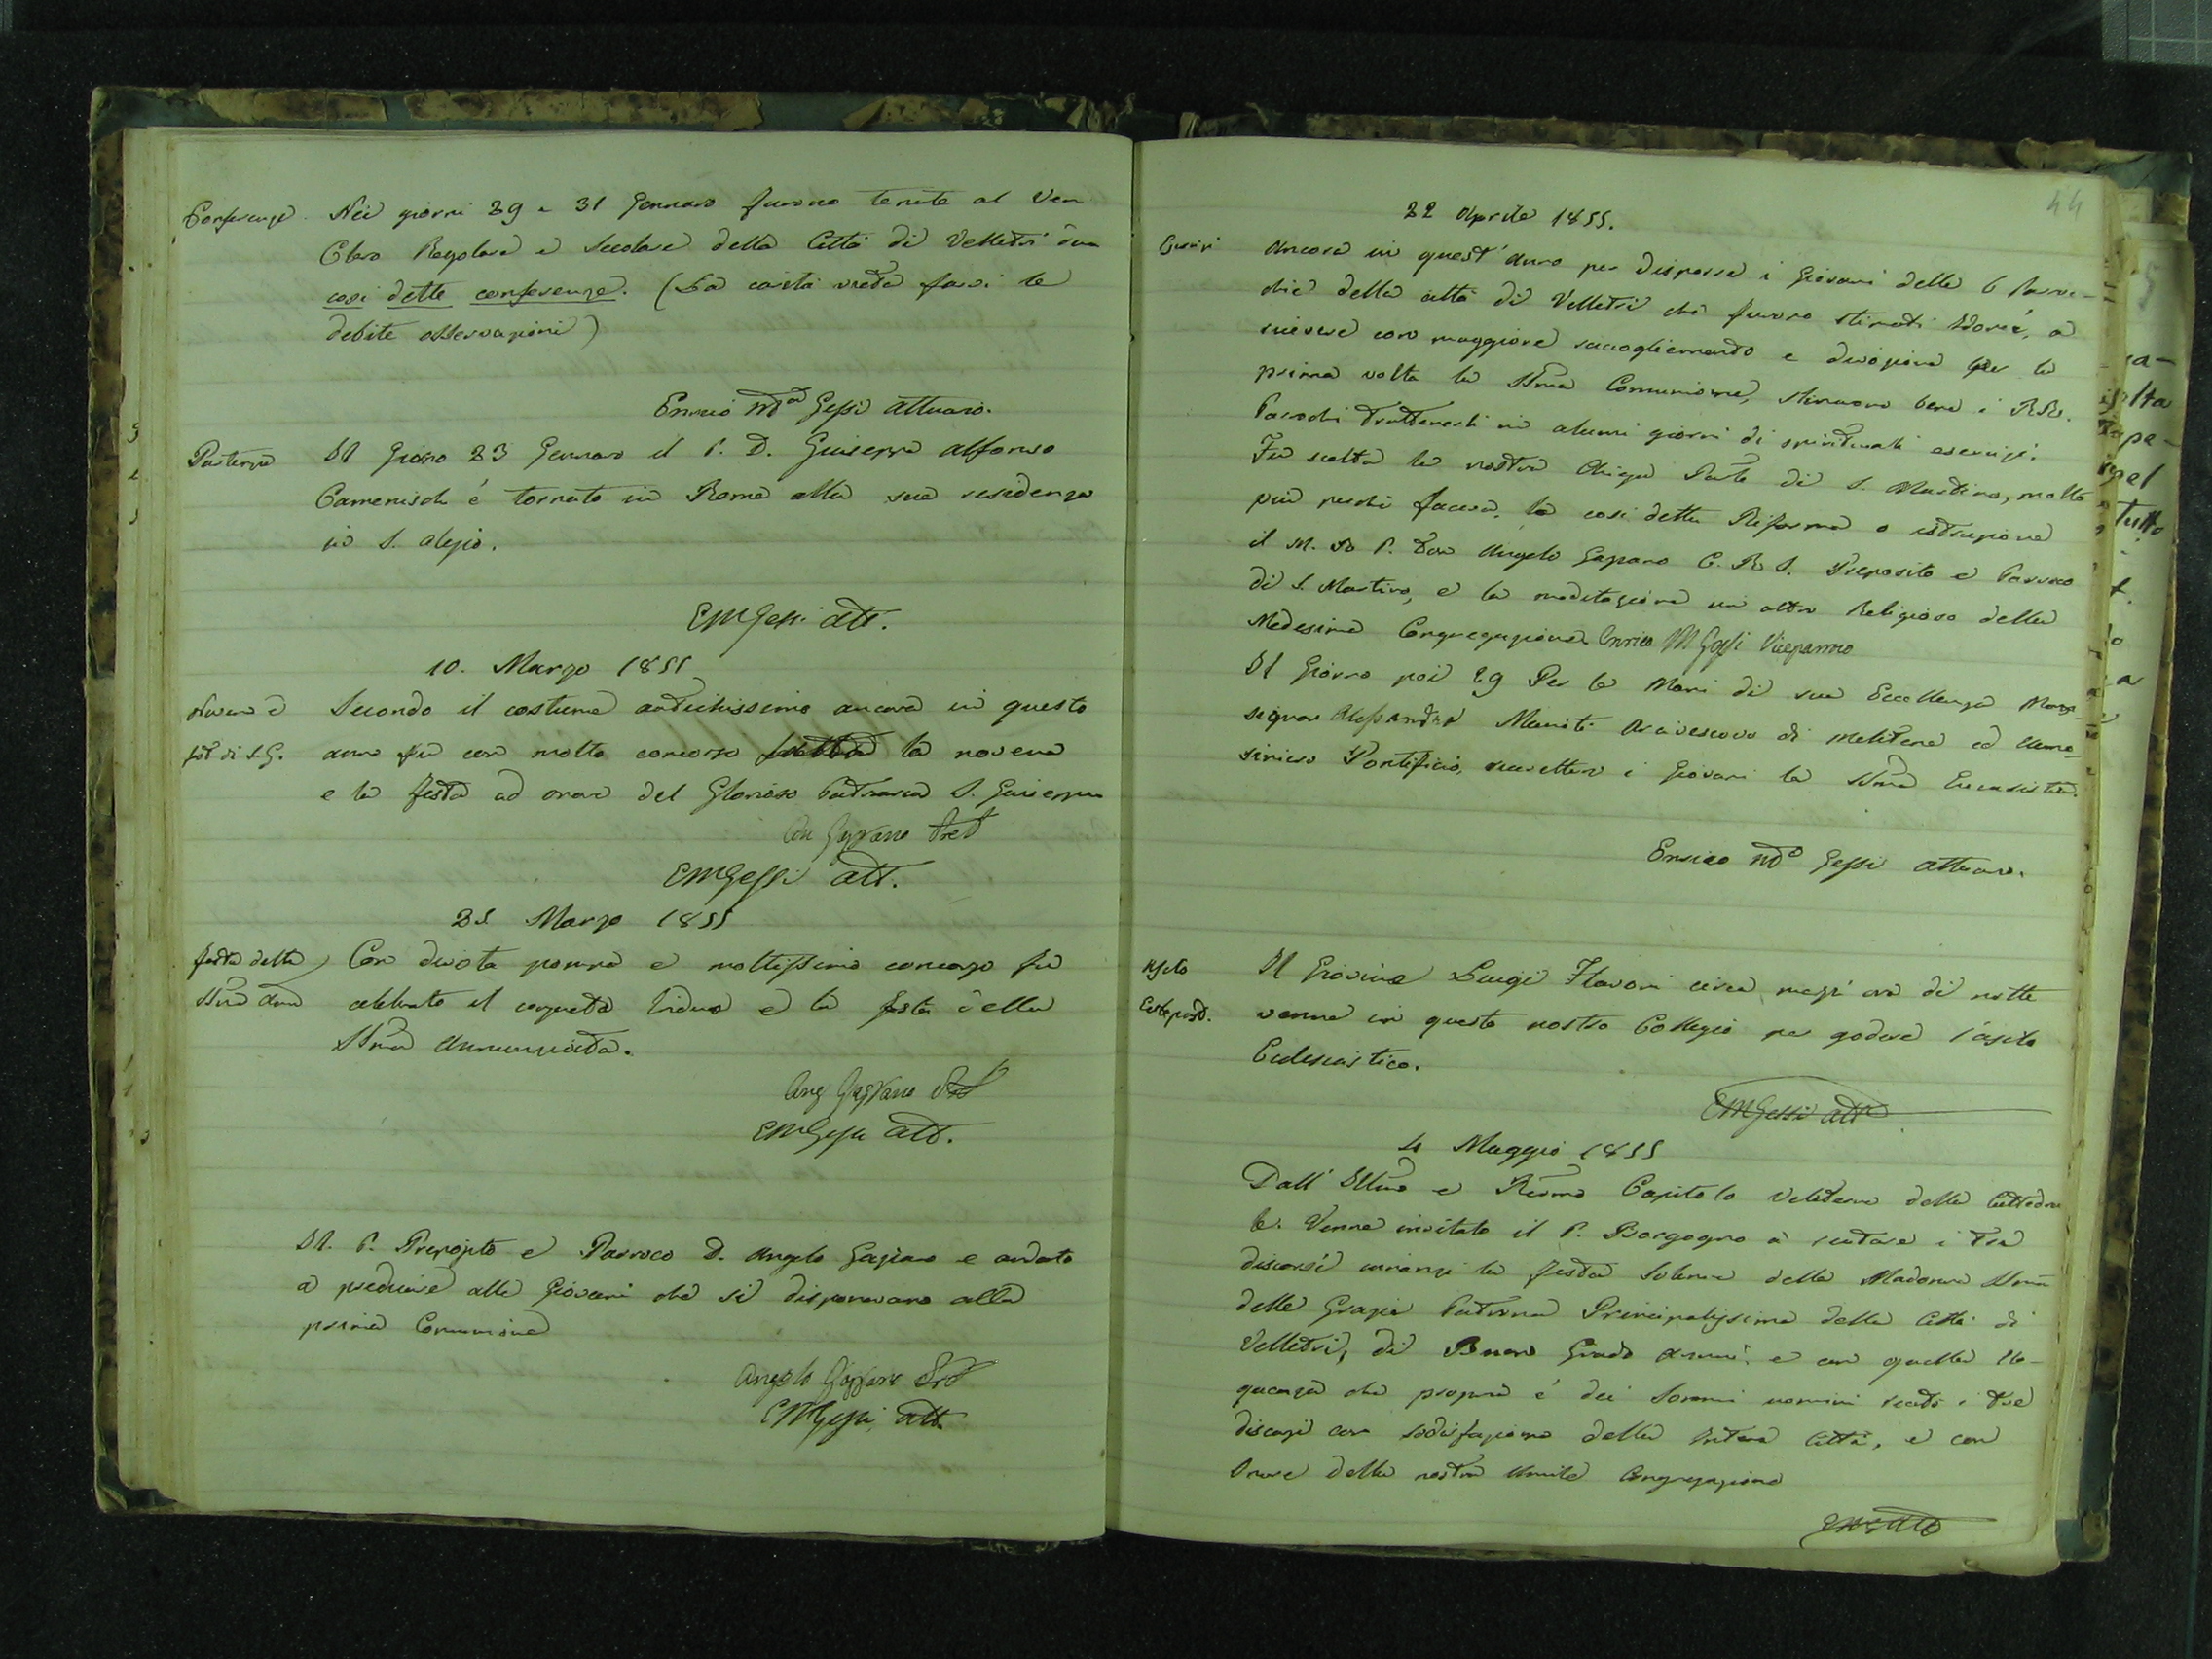 Conferenze. Nei giorni 29 e 31 Gennaro furono tenute al Ven
Clero Regolare e Secolare della Città di Velletri due
così dette conferenze. (La carità vieta farsi le
debite osservazioni)
Enrico Ma Gessi attuaro.
Partenza Il Giorno 23 Gennaro il P. D. Giuseppe Alfonso
Camenisch é tornato in Roma alla sua residenza
in S. Alejio.
EMGessi att.
10. Marzo 1855
Novena e Secondo il costume antichissimo ancora in questo
fest di S.G. anno fu con molto concorso la novena
e la festa ad onore del Glorioso Patriarca S. Giuseppe
An Gazzano Pret
EMGessi att.
25 Marzo 1855
festa della Con divota pompa e moltissimo concorso fu
SSma Ann celebrato il consueto Triduo e la festa della
SSma Annunziata.
Ang Gazzano
EMGessi att.
Il P. Preposito e Parroco D. Angelo Gazzano e andato
a predicare alle Giovani che si disponevano alla
prima Comunione
Angelo Gazzano
EMGessi att.
44
22 Aprile 1855.
Esercizi Ancora in quest'anno per disporre i Giovani delle 6 Parroc-
chie della città di Velletri che furono stimati idonei, a
ricevere con maggiore raccoglimento e divozione per la
prima volta la SSma Comunione, stimaron bene i RR.
Parochi trattenerli in alcuni giorni di spirituali esercizi.
Fu scelta la nostra Chiesa Parle di S. Martino, molto
più perchè faceva la così detta Riforma o istruzione
il M. R P. Don Angelo Gazzano C. R S. Preposito e Parroco
di S. Martino, e la meditazione un altro Religioso della
Medesima Congregazione Enrico M Gessi Viceparroco
Il Giorno poi 29 Per le Mani di sua Eccellenza Mons-
signor Alessandro Arcivescovo di Melitene ed Elemo-
siniero Pontificio, ricevettero i Giovani la SSma Eucaristia.
Enrico Ma Gessi attuaro.
Asilo Il Giovine Luigi Flavoni circa mezz'ora di notte
venne in questo nostro Collegio per godere l'asilo
Ecclesiastico.
EMGessi att
4 Maggio 1855
Dall' Illmo e Rismo Capitolo Veliterno della Cattedra-
le. Venne invitato il P. Borgogno a recitare i tre
discorsi innanzi la festa solenne della Madonna SSma
delle Grazie Patrona Principalissima della Città di
Velletri, di Buon Grado e con quella elo-
quenza che propria é dei Sommi uomini recitò i tre
discorsi con sodisfazione della intera Città, e con
onore della nostra Umile Congregazione